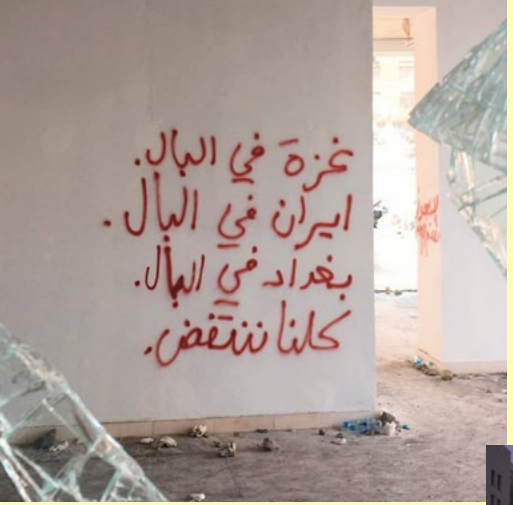 غزة في البال.
ايران في البال.
بغداد في البال.
كلنا ننتفض.